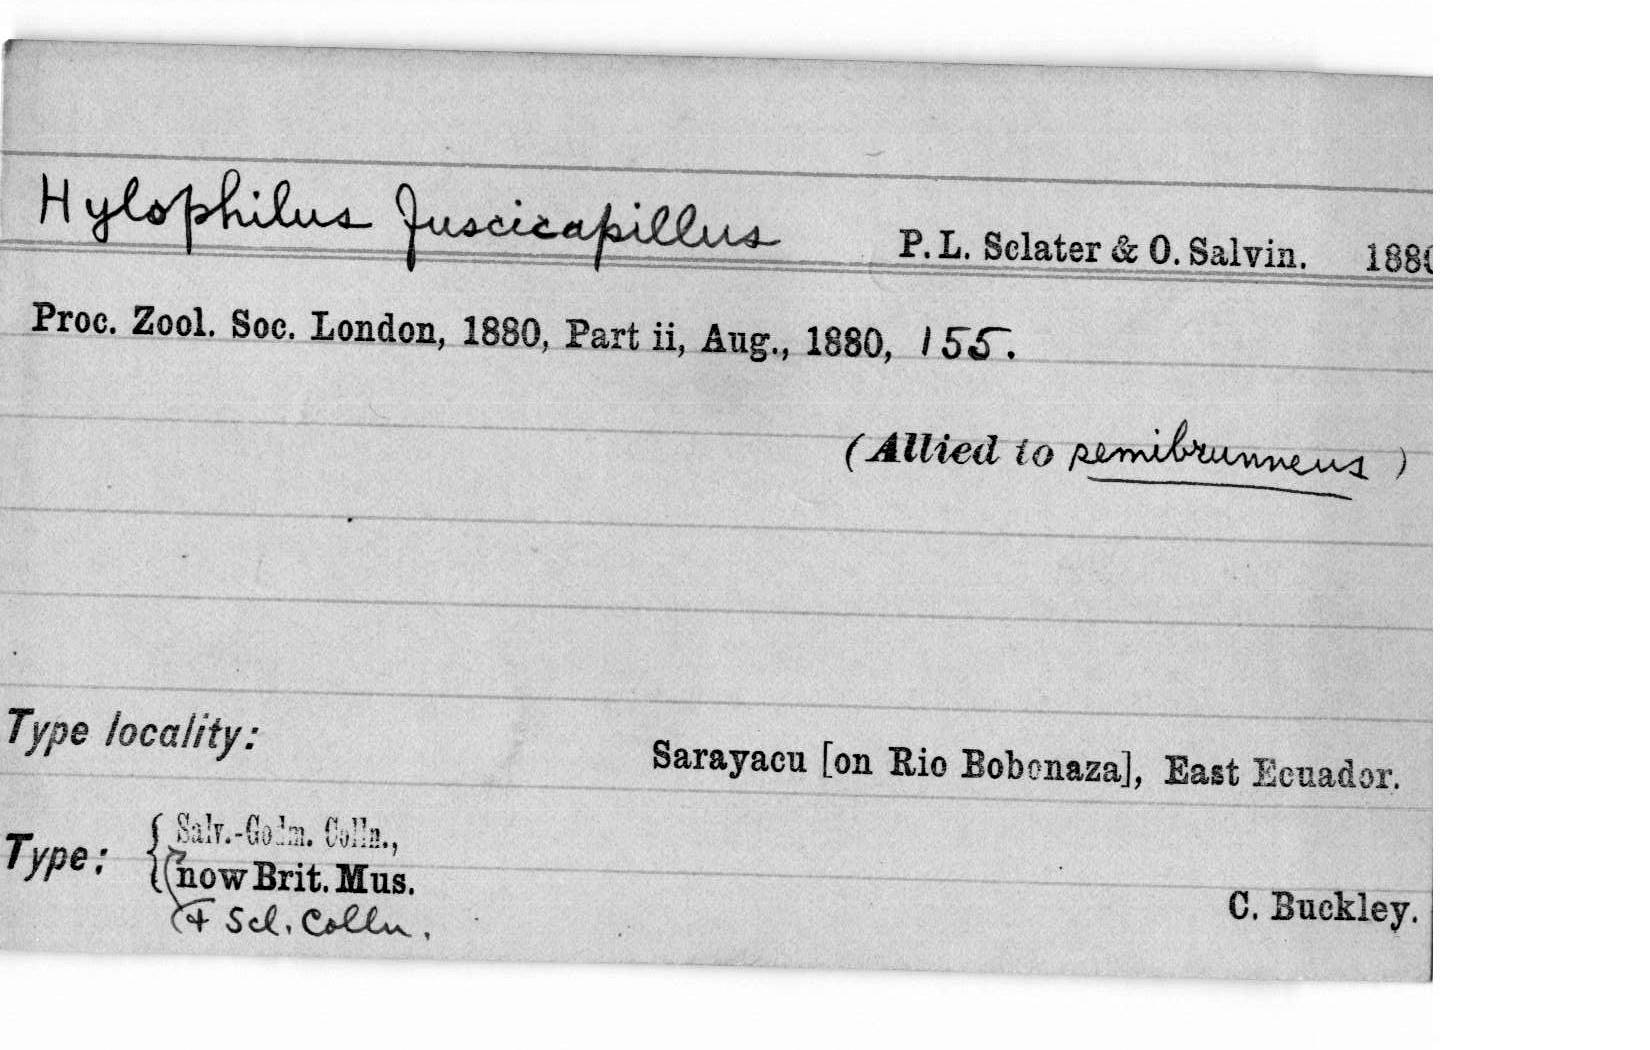 Hylophilus fuscicapillus P. L. Sclater & O. Salvin. 1880
Proc. Zool. Soc. London, 1880, Part ii, Aug., 1880, 155.
(Allied to semibrunneus)
Type locality:
Sarayacu [on Rio Bobonaza], East Ecuador.
Type: { Salv.-Godm. Colln.,
now Brit. Mus.
+ Scl. Colln.
C. Buckley.